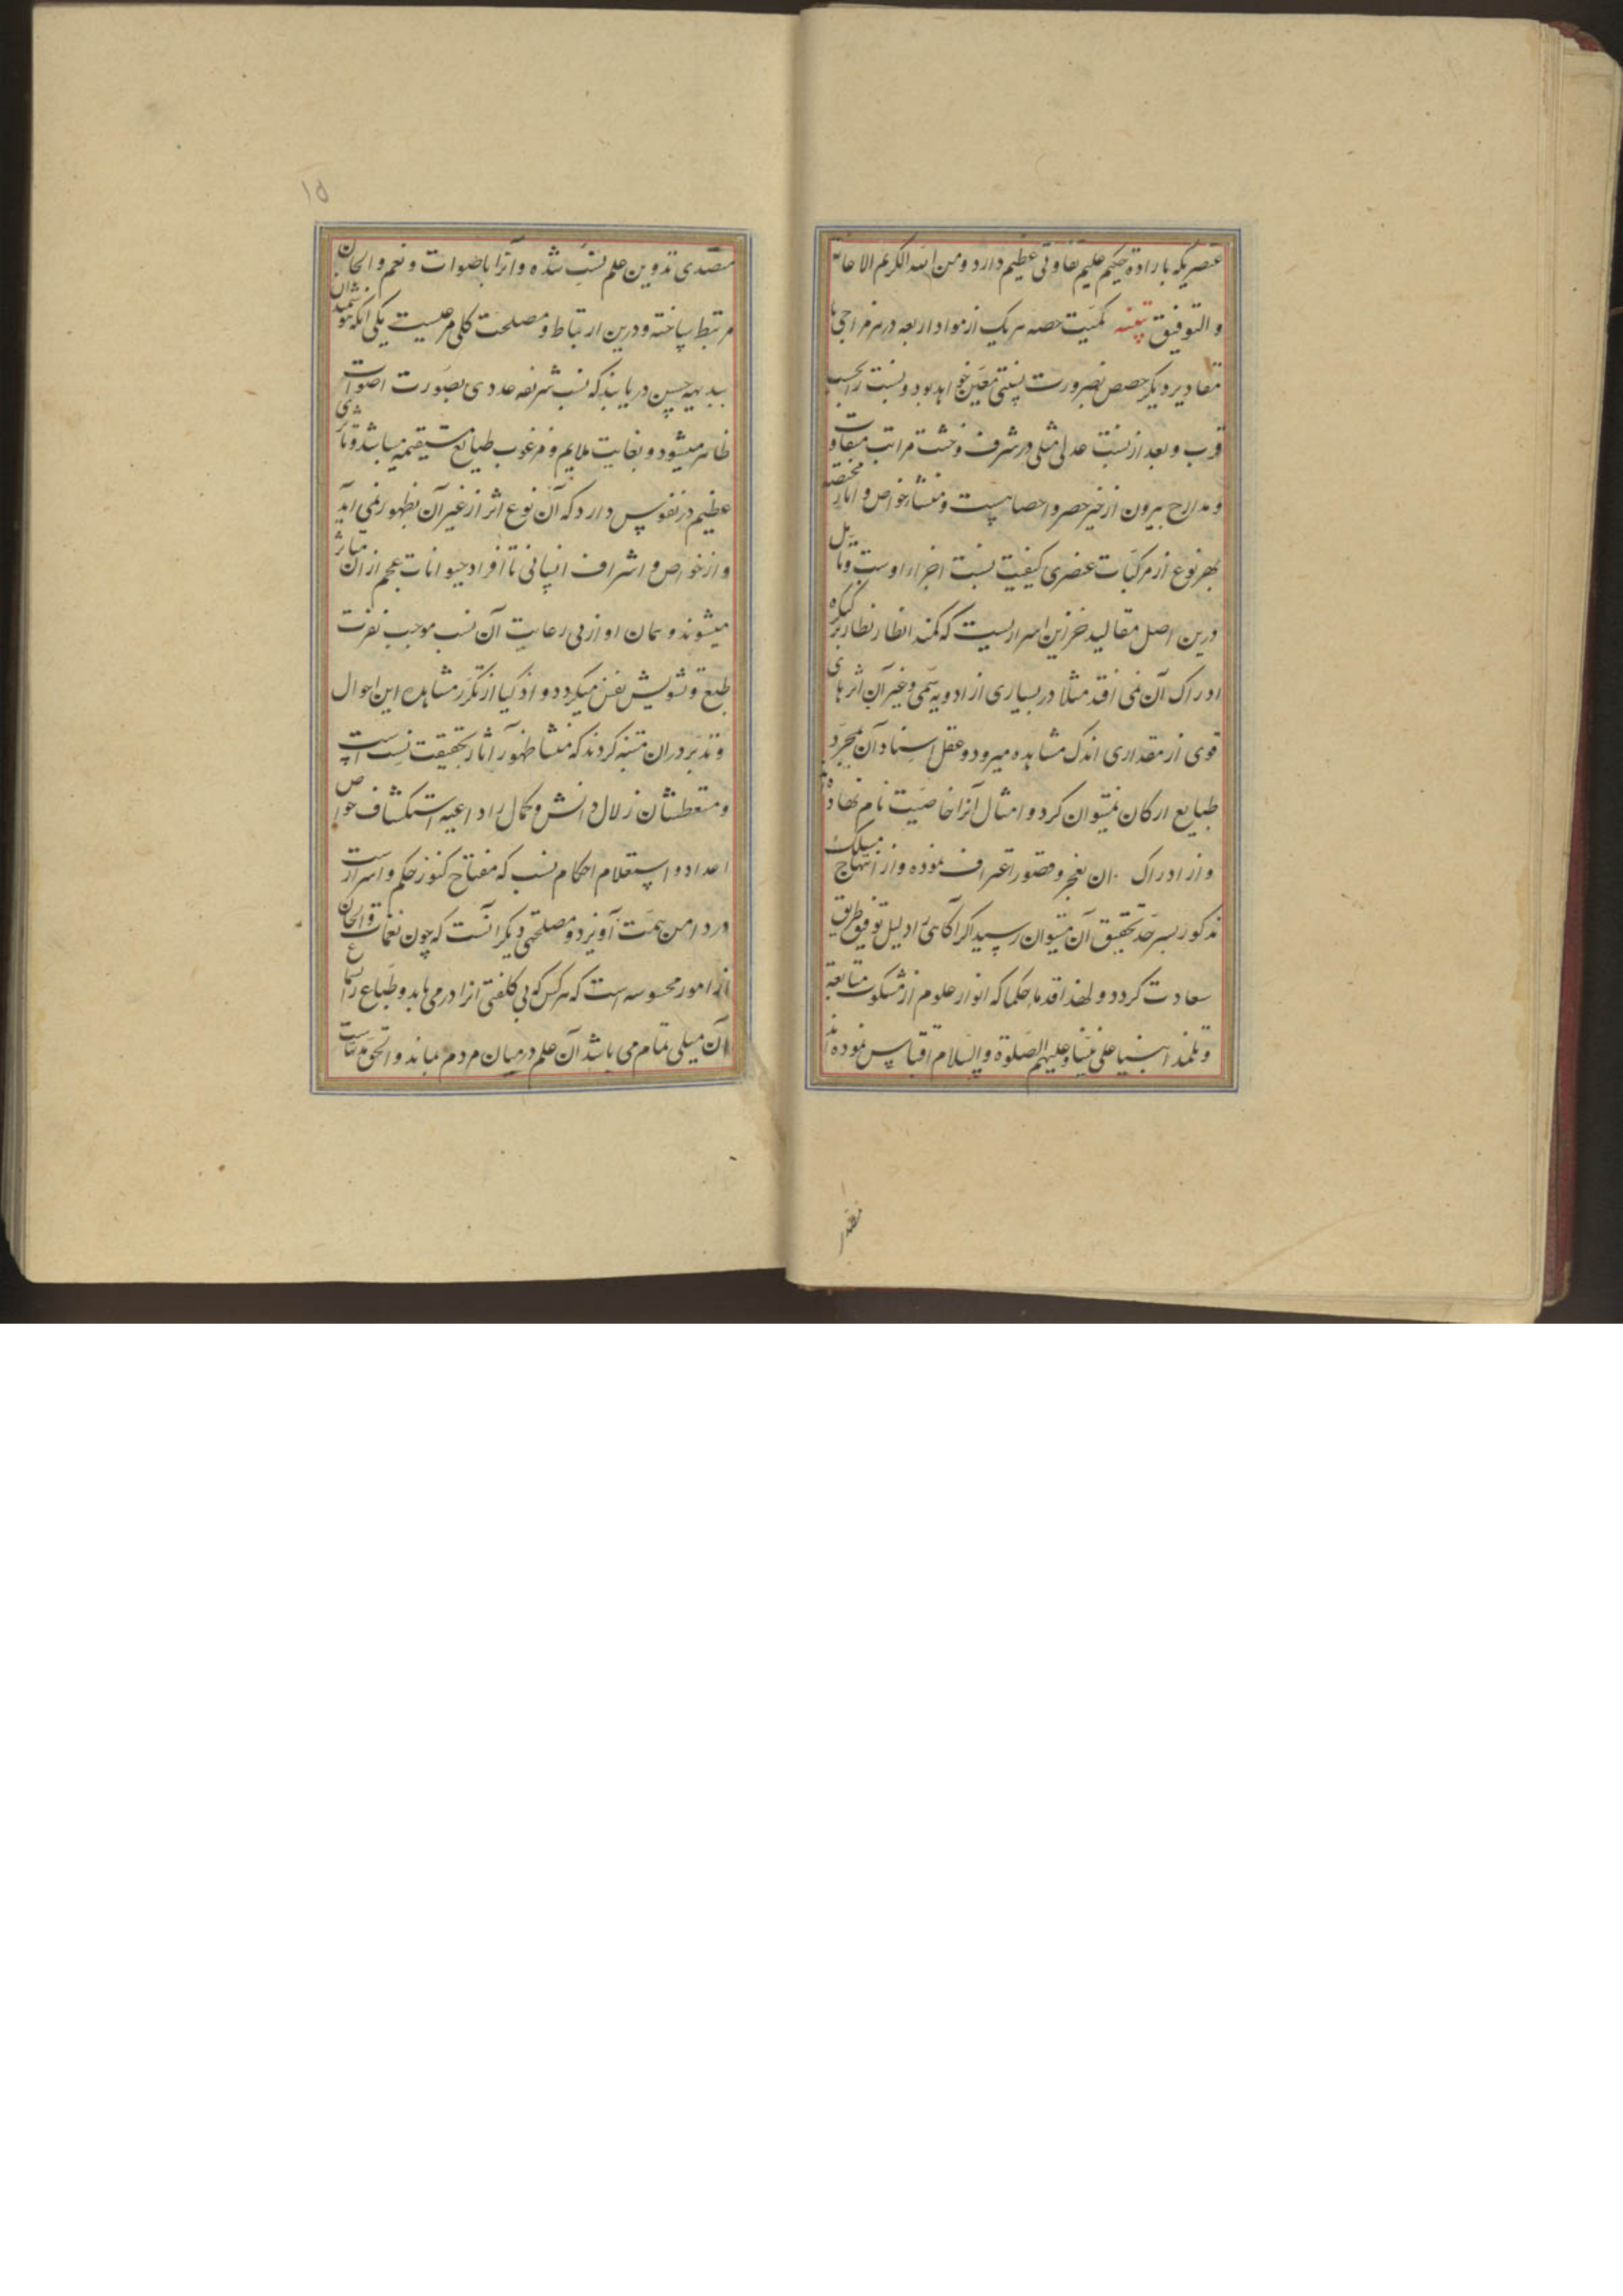 عنصریکه بارادة حکیم علیم تفاوتی عظیم دارد و من الله الکریم الاعانة
و التوفیق تنبیه کمیت حصه هر یک از مواد اربعه در هر مزاجی با
مقادیر دیکر حصص بضرورت بنسبتی معین خواهد بود و نسبت را بحسب
قرب و بعد از نسبت عدلی مثلی در شرف و خست مراتب متفاوت
و مدارج بیرون از حیز حصر و احصا هست و منشاء خواص و اثار مختصه
بهر نوع از مرکبات عنصری کیفیت نسبت اجزاء اوست و تامل
درین اصل مقالید خزاین اسراریست که کمند انظار نظار بر کنکره
ادراک آن نمی افتد مثلا در بسیاری از ادویه سمی و غیر آن اثرهای
قوی از مقداری اندک مشاهده میرود و عقل اسناد آن بمجرد
طبایع ارکان نمیتوان کرد و امثال آنرا خاصیت نام نهاده
و از ادراک ان بعجز و قصور اعتراف نموده و از انتهاج مسلک
مذکور بسرحد تحقیق آن میتوان رسید اکر اکاهی را دلیل توفیق طریق
سعادت کردد و لهذا قدماء حکما که انوار علوم از مشکوت متابعة
و تلمذ انبیا علی نبینا و علیهم الصلوة و السلام اقتباس نموده اند
متصدی تدوین علم نسب شده و آنرا باصوات و نغم و الحان
مرتبط ساخته و درین ارتباط و مصلحت کلی مرعیست یکی انکه هوشمندان
ببدیهه حس دریابند که نسب شریفه عددی بصورت اصوات
ظاهر میشود و بغایت ملایم و مرغوب طبایع مستقیمه میباشد و تاثیری
عظیم در نفوس دارد که آن نوع اثر از غیر آن بظهور نمی آید
و از خواص و اشراف انسانی تا افراد حیوانات عجم از ان متاثر
میشوند و همان اواز بی رعایت آن نسب موجب نفرت
طبع و تشویش نفس میکردد و اذکیا از تکرر مشاهده این احوال
و تدبر دران متنبه کردند که منشا ظهور آثار بحقیقت نسب است
و متعطشان زلال دانش و کمال را داعیه استکشاف خواص
اعداد و استعلام احکام نسب که مفتاح کنوز حکم و اسرارست
در دامن همت آویزد و مصلحتی دیکر آنست که چون نغمات و الحان
از امور محسوسه است که هر کس که بی کلفتی انرا در می یابد و طباع را بسماع
آن میلی تمام می باشد آن علم در میان مردم بماند و الحق مدتهاست
نقدر
۱۵